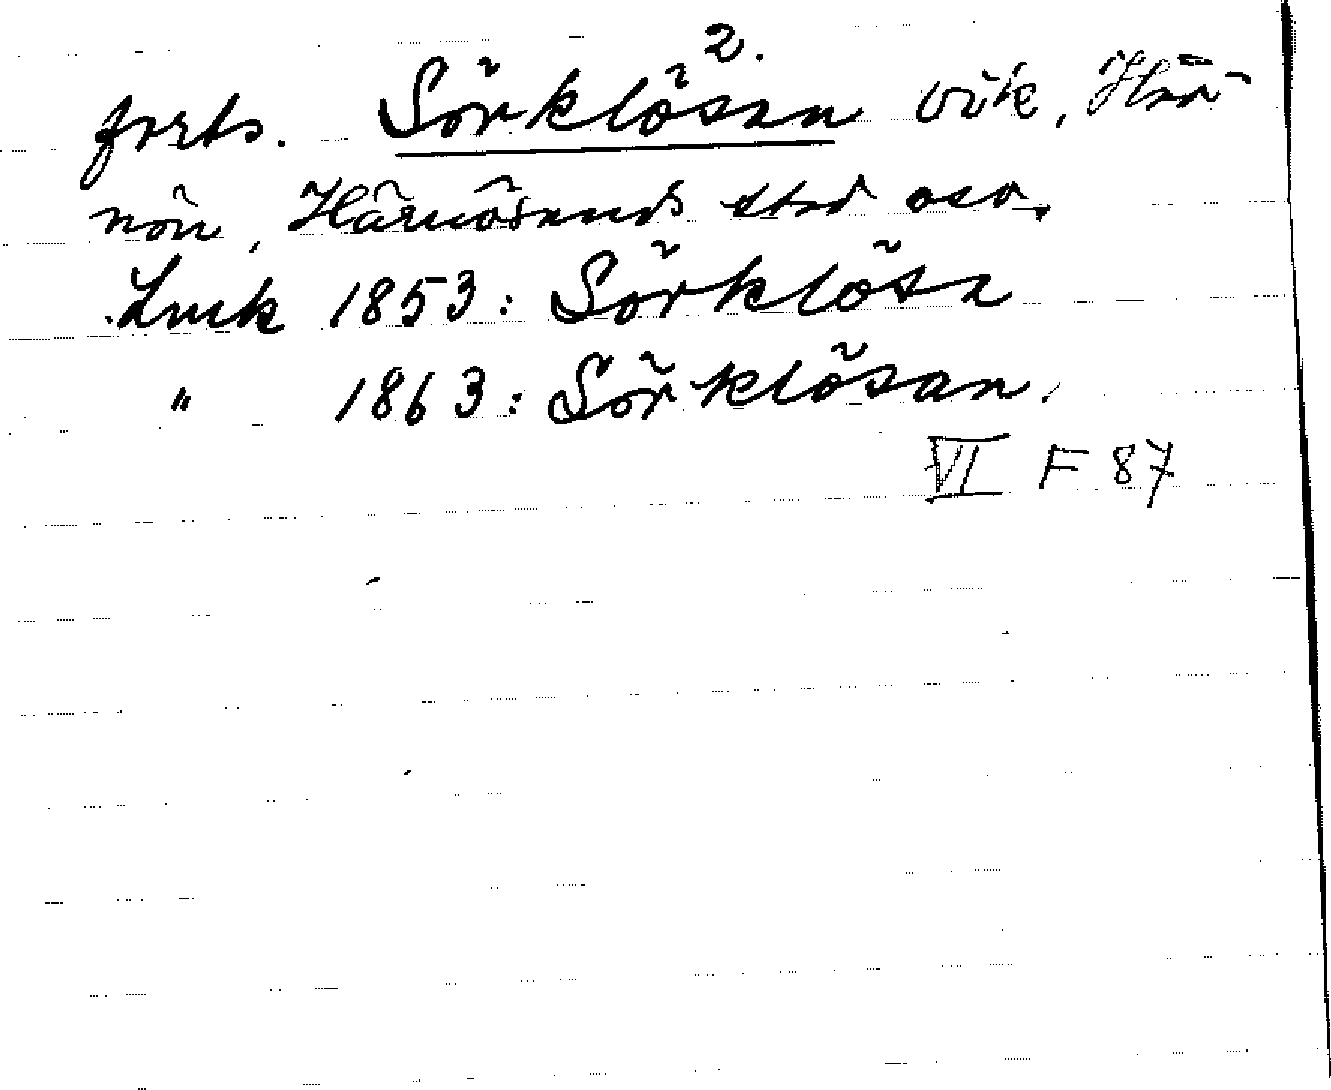 2.
forts. Sörklösan vik, Här-
nön, Härnösands stad oso.
Lmk 1853: Sörklösa
" 1863: Sörklösan.
VI F 87